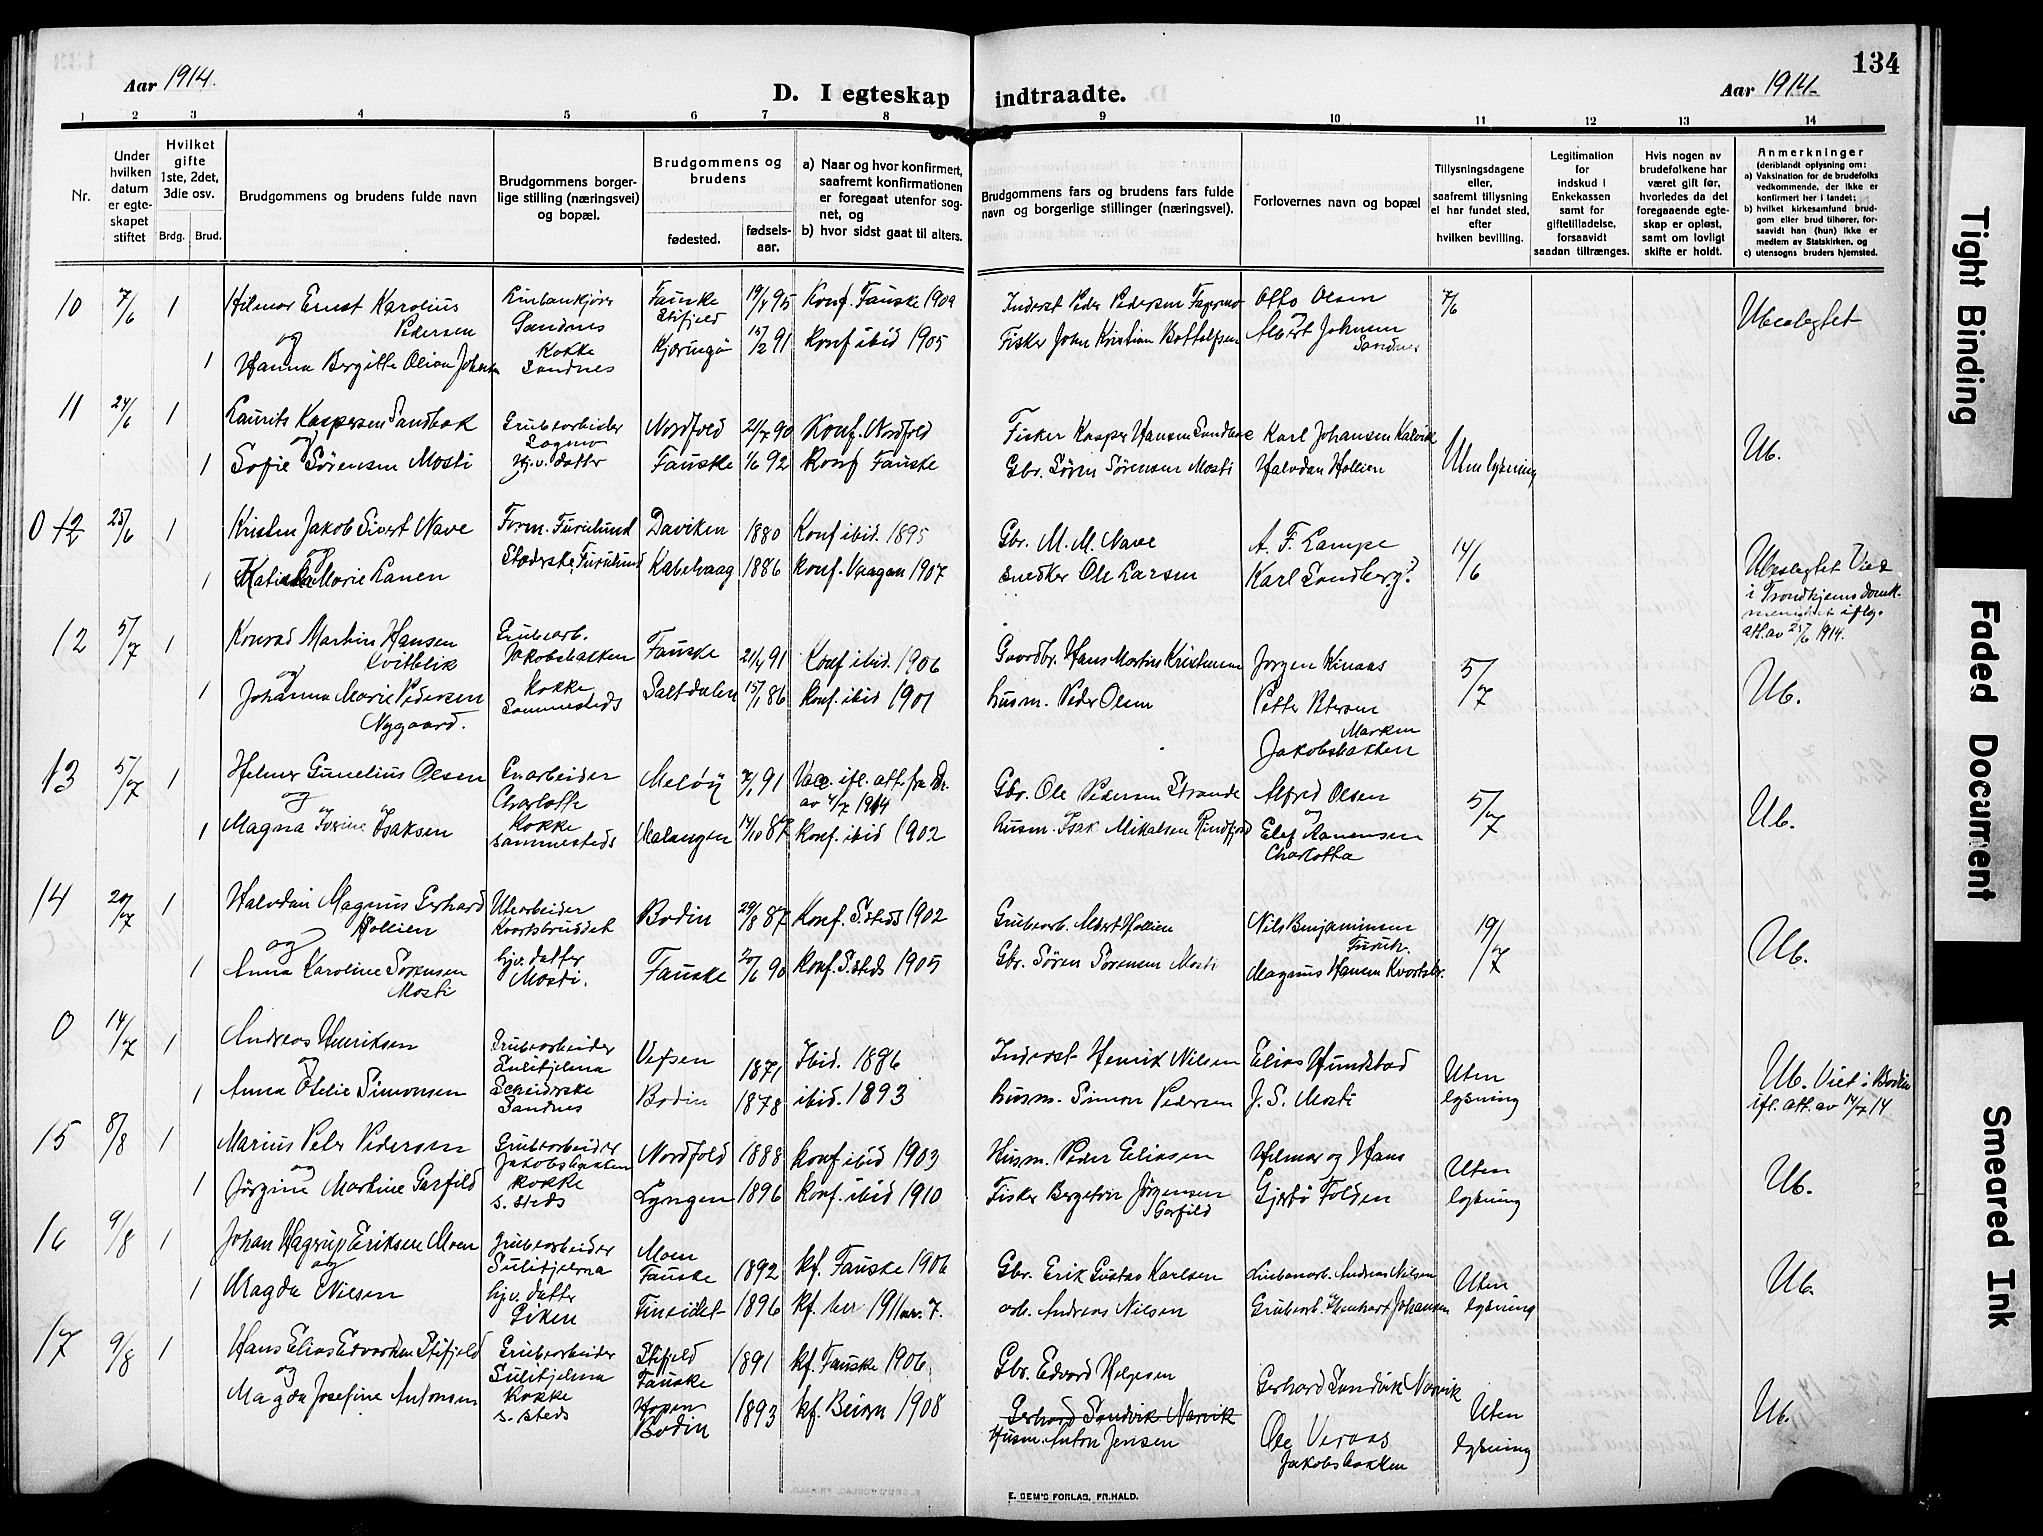 134
Aar 1914.
Aar 1914
D. I egteskap indtraadte.
1 2 3 4 5 6 7 8 9 10 11 12 13 14
Nr.
Under hvilken datum er egteskapet stiftet
Hvilket gifte 1ste, 2det, 3die osv.
Brdg. Brud.
Brudgommens og brudens fulde navn
Brudgommens borgerlige stilling (næringsvei) og bopæl.
Brudgommens og brudens
fødested.
fødselsaar.
a) Naar og hvor konfirmert, saafremt konfirmationen er foregaat utenfor sognet, og
b) hvor sidst gaat til alters.
Brudgommens fars og brudens fars fulde navn og borgerlige stillinger (næringsvei).
Forlovernes navn og bopæl
Tillysningsdagene eller, saafremt tillysning ei har fundet sted, efter hvilken bevilling.
Legitimation for indskud i Enkekassen samt for giftetilladelse, forsaavidt saadan tiltrænges.
Hvis nogen av brudefolkene har været gift før, hvorledes da det foregaaende egteskap er opløst, samt om lovligt skifte er holdt.
Anmerkninger
(deriblandt oplysning om:
a) Vaksination for de brudefolks vedkommende, der ikke er konfirmert her i landet;
b) hvilket kirkesamfund brudgom eller brud tilhører, forsaavidt han (hun) ikke er medlem av Statskirken, og
c) utensogns bruders hjemsted.
10 7/6 1 Hilmar Ernst Karolius Pedersen Sandnes Fauske Stifjeld 19/4 95 Konf. Fauske 1909 Inderst Peder Pedersen Otto Olsen 7/6 Ubeslegtet
og
1 Hanna Bergitte Oliva Kokke Sandnes Kjæringø 15/2 91 Konf ibid 1905 Fisker John Kristian Albert Johnsen Sandnes
11 24/6 1 Laurits Kaspersen Sandbak Grubearbeider Nordfold 21/7 90 Konf. Nordfold Fisker Kasper Hansen Karl Johansen Ub.
og
1 Sofie Sørensen Mosti Hj.v. datter Fauske 1/6 92 Konf Fauske Gbr. Søren Sørensen Mosti Halvdan Hollien Uten lysning
0 12 25/6 1 Kristen Jakob Sivert Nave Form. Furulund Daviken 1880 Konf ibid. 1895 Gbr. M. M. Nave A. F. Lampe 14/6 Ubeslegtet Viet i Trondhjems
1 Marie Furulund Kabelvaag 1886 Konf. Vaagan 1907 Snedker Ole Larsen Karl Sandberg? att. av 25/6 1914.
12 5/7 1 Konrad Martin Hansen Kvitblik Grubearb. Jakobsbakken Fauske 21/4 91 Konf ibid. 1906 Gaardbr. Hans Martin Jørgen 5/7 Ub.
og
1 Johanna Marie Pedersen Nygaard. Kokke Sammesteds Saltdalen 15/1 86 Konf. ibid 1901 Husm. Peder Olsen Petter Petersen
Jakobsbakken
13 5/7 1 Helmer Olsen Charlotta Meløy 91 Vacc. ifl. att. fra Dr. av 4/7 1914 Gbr. Ole Pedersen Strande Alfred Olsen 5/7 Ub.
og
1 Magna Isaksen Kokke sammesteds Malangen 14/10 87 Konf. ibid 1902 Husm. Isak Mikalsen Charlotta
14 20/7 1 Halvdan Magnus Gerhard Hollien Utearbeider Kvartsbruddet Bodin 29/8 87 Konf. S.steds 1902 Grubearb. Albert Hollien Nils Benjaminsen 19/7 Ub.
og
1 Anna Karoline Sørensen Mosti hj.v. datter Mosti. Fauske 20/6 90 Konf. S.steds 1905 Gbr. Søren Sørensen Mosti Magnus Hansen Kvartsbr.
0 14/7 1 Andreas Henriksen Grubearbeider Sulitjelma Vefsen 1871 Ibid. 1886 Inderst Henrik Nilsen Elias Hundstad Uten lysning Ub. Viet i Bodin ifl. att. av 14/7 14
og
1 Anna Otelie Simonsen Sandnes Bodin 1878 ibid. 1893 Husm. Simon Pedersen J. S. Mosti
15 8/8 1 Marius Peder Pedersen Grubearbeider Jakobsbakken Nordfold 1888 Konf ibid 1903 Husm. Peder Eliasen Hilmar og Hans Uten lysning Ub.
og
1 Jørgine Martine Garfild Kokke S. steds Lyngen 1896 Konf. ibid 1910 Fisker Jørgensen Garfild Folden
16 9/8 1 Johan Hagrup Eriksen Moen Grubearbeider Sulitjelma Moen Fauske 1892 kf. Fauske 1906 Gbr. Erik Gustav Karlsen Linbanearb. Andreas Nilsen Uten lysning Ub.
og
1 Magda Nilsen hj.v. datter Giken Finneidet 1896 kf. her 1911 nr. 7. arb. Andreas Nilsen Grubearb. Johansen
17 9/8 1 Hans Elias Edvardsen Stifjeld Grubearbeider Sulitjelma Stifjeld Fauske 1891 kf. Fauske 1906. Gbr. Edvard Helgesen Gerhard Sandvik Narvik Uten lysning Ub.
og
1 Magda Josefine Antonsen Kokke s. steds Hopen Bodin 1893 kf. Beiarn 1908 Gerhard Sandvik Narvik
Husm. Anton Jensen Ole Veraas Jakobsbakken
E. SEM'S FORLAG, FR.HALD.
Tight Binding
Faded Document
Smeared Ink